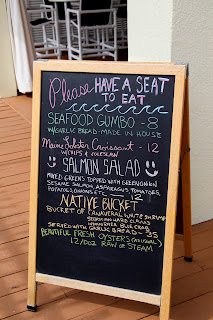 Please HAVE A SEAT
TO EAT
SEAFOOD GUMBO - 8
W/GARLIC BREAD - MADE IN HOUSE
Maine Lobster Croissant - 12
W/CHIPS & COLESLAW
SALMON SALAD
MIXED GREENS TOPPED WITH GREEN ONION
SESAME SALMON, ASPARAGUS, TOMATOES,
POTATOES, ONIONS ETC. 12
NATIVE BUCKET
BUCKET OF CANAVERAL WHITE SHRIMP
HARD CLAMS
BLUE CRAB
SERVED WITH GARLIC BREAD - 35
BEAUTIFUL FRESH OYSTERS
12/DOZ RAW OR STEAM